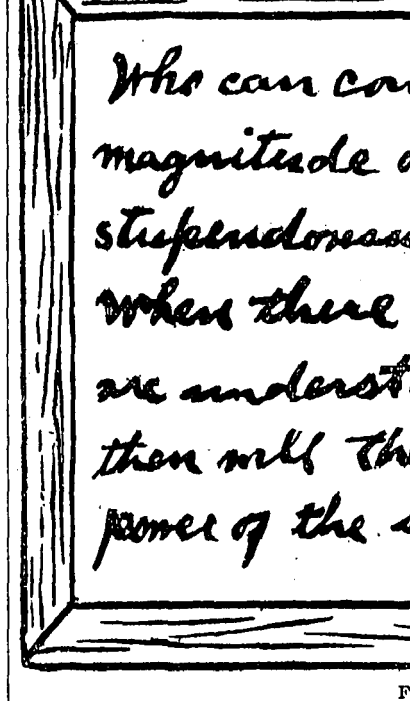 Who can con
magnitude o
stupendousness
When there
are underst
then will the
power of the s
F